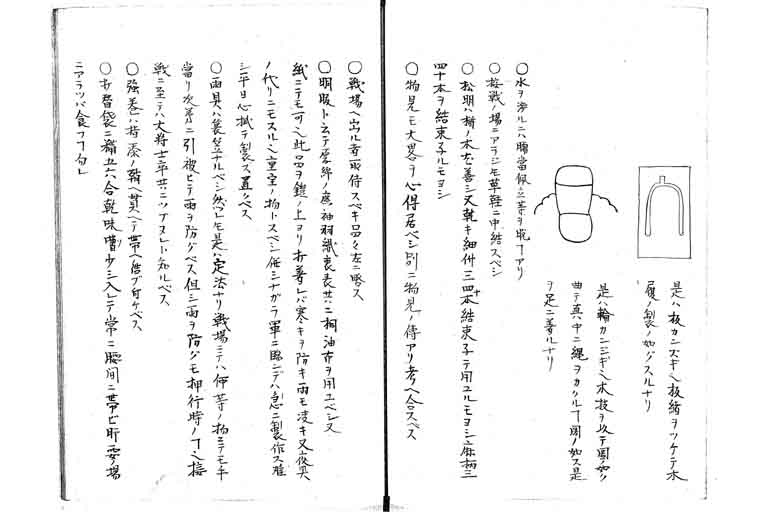 是ハ板カンジキ也板緒ヲツケテ木
履ノ製ノ如クスルナリ
是ハ輪カンジキ也木枝ヲ以テ図ノ如ク
曲テ真中ニ縄ヲカクル丅図ノ如ス是
ヲ足ニ著ルナリ
〇水ヲ渉ルニハ臑當佩立等ヲ脱丅アリ
〇接戦ノ場ニアラジモ草鞋ニ中結スベシ
〇松明ハ樁ノ木ヲ善シ又乾キ細竹三四十本結束子テ用ユルモヨシ麻柄三
四十本ヲ結束子ルモヨシ
〇物見モ大畧ヲ心得居ベシ別ニ物見ノ傳アリ考ヘ合スベス
〇戦場ヘ出ル者取持スベキ品々左ニ畧ス
〇胴服ト云テ厚綿ノ廣袖羽織裏表共ニ桐油布ヲ用ユベシ又
紙ニテモ可也此品ヲ鎧ノ上ヨリ打著レバ寒キヲ防キ雨モ凌キ又夜具
ノ代リニモスル也重宝ノ物トスベシ但シナガラ軍ニ臨ンデハ急ニ製作ス難
シ平日心掛テ製ス置ベス
〇雨具ハ蓑笠ナルベシ然レモ是ハ定法ナリ戦場ニテハ何等ノ物ニテモ手
當リ次第ニ引被ヒテ雨ヲ防グベス但シ雨ヲ防グモ押行時ノ丅也接
戦ニ至テハ大将士卒共ニツブヌレト知ルベス
〇強巻ハ持添ノ鞘ヘ貫ヘテ帯ヘ結ブ付ケベス
〇打替袋ニ糒五六合乾味噌少シ入レテ常ニ腰間ニ帯ビ肝要ノ場
ニアラヅバ食フ丅勿レ